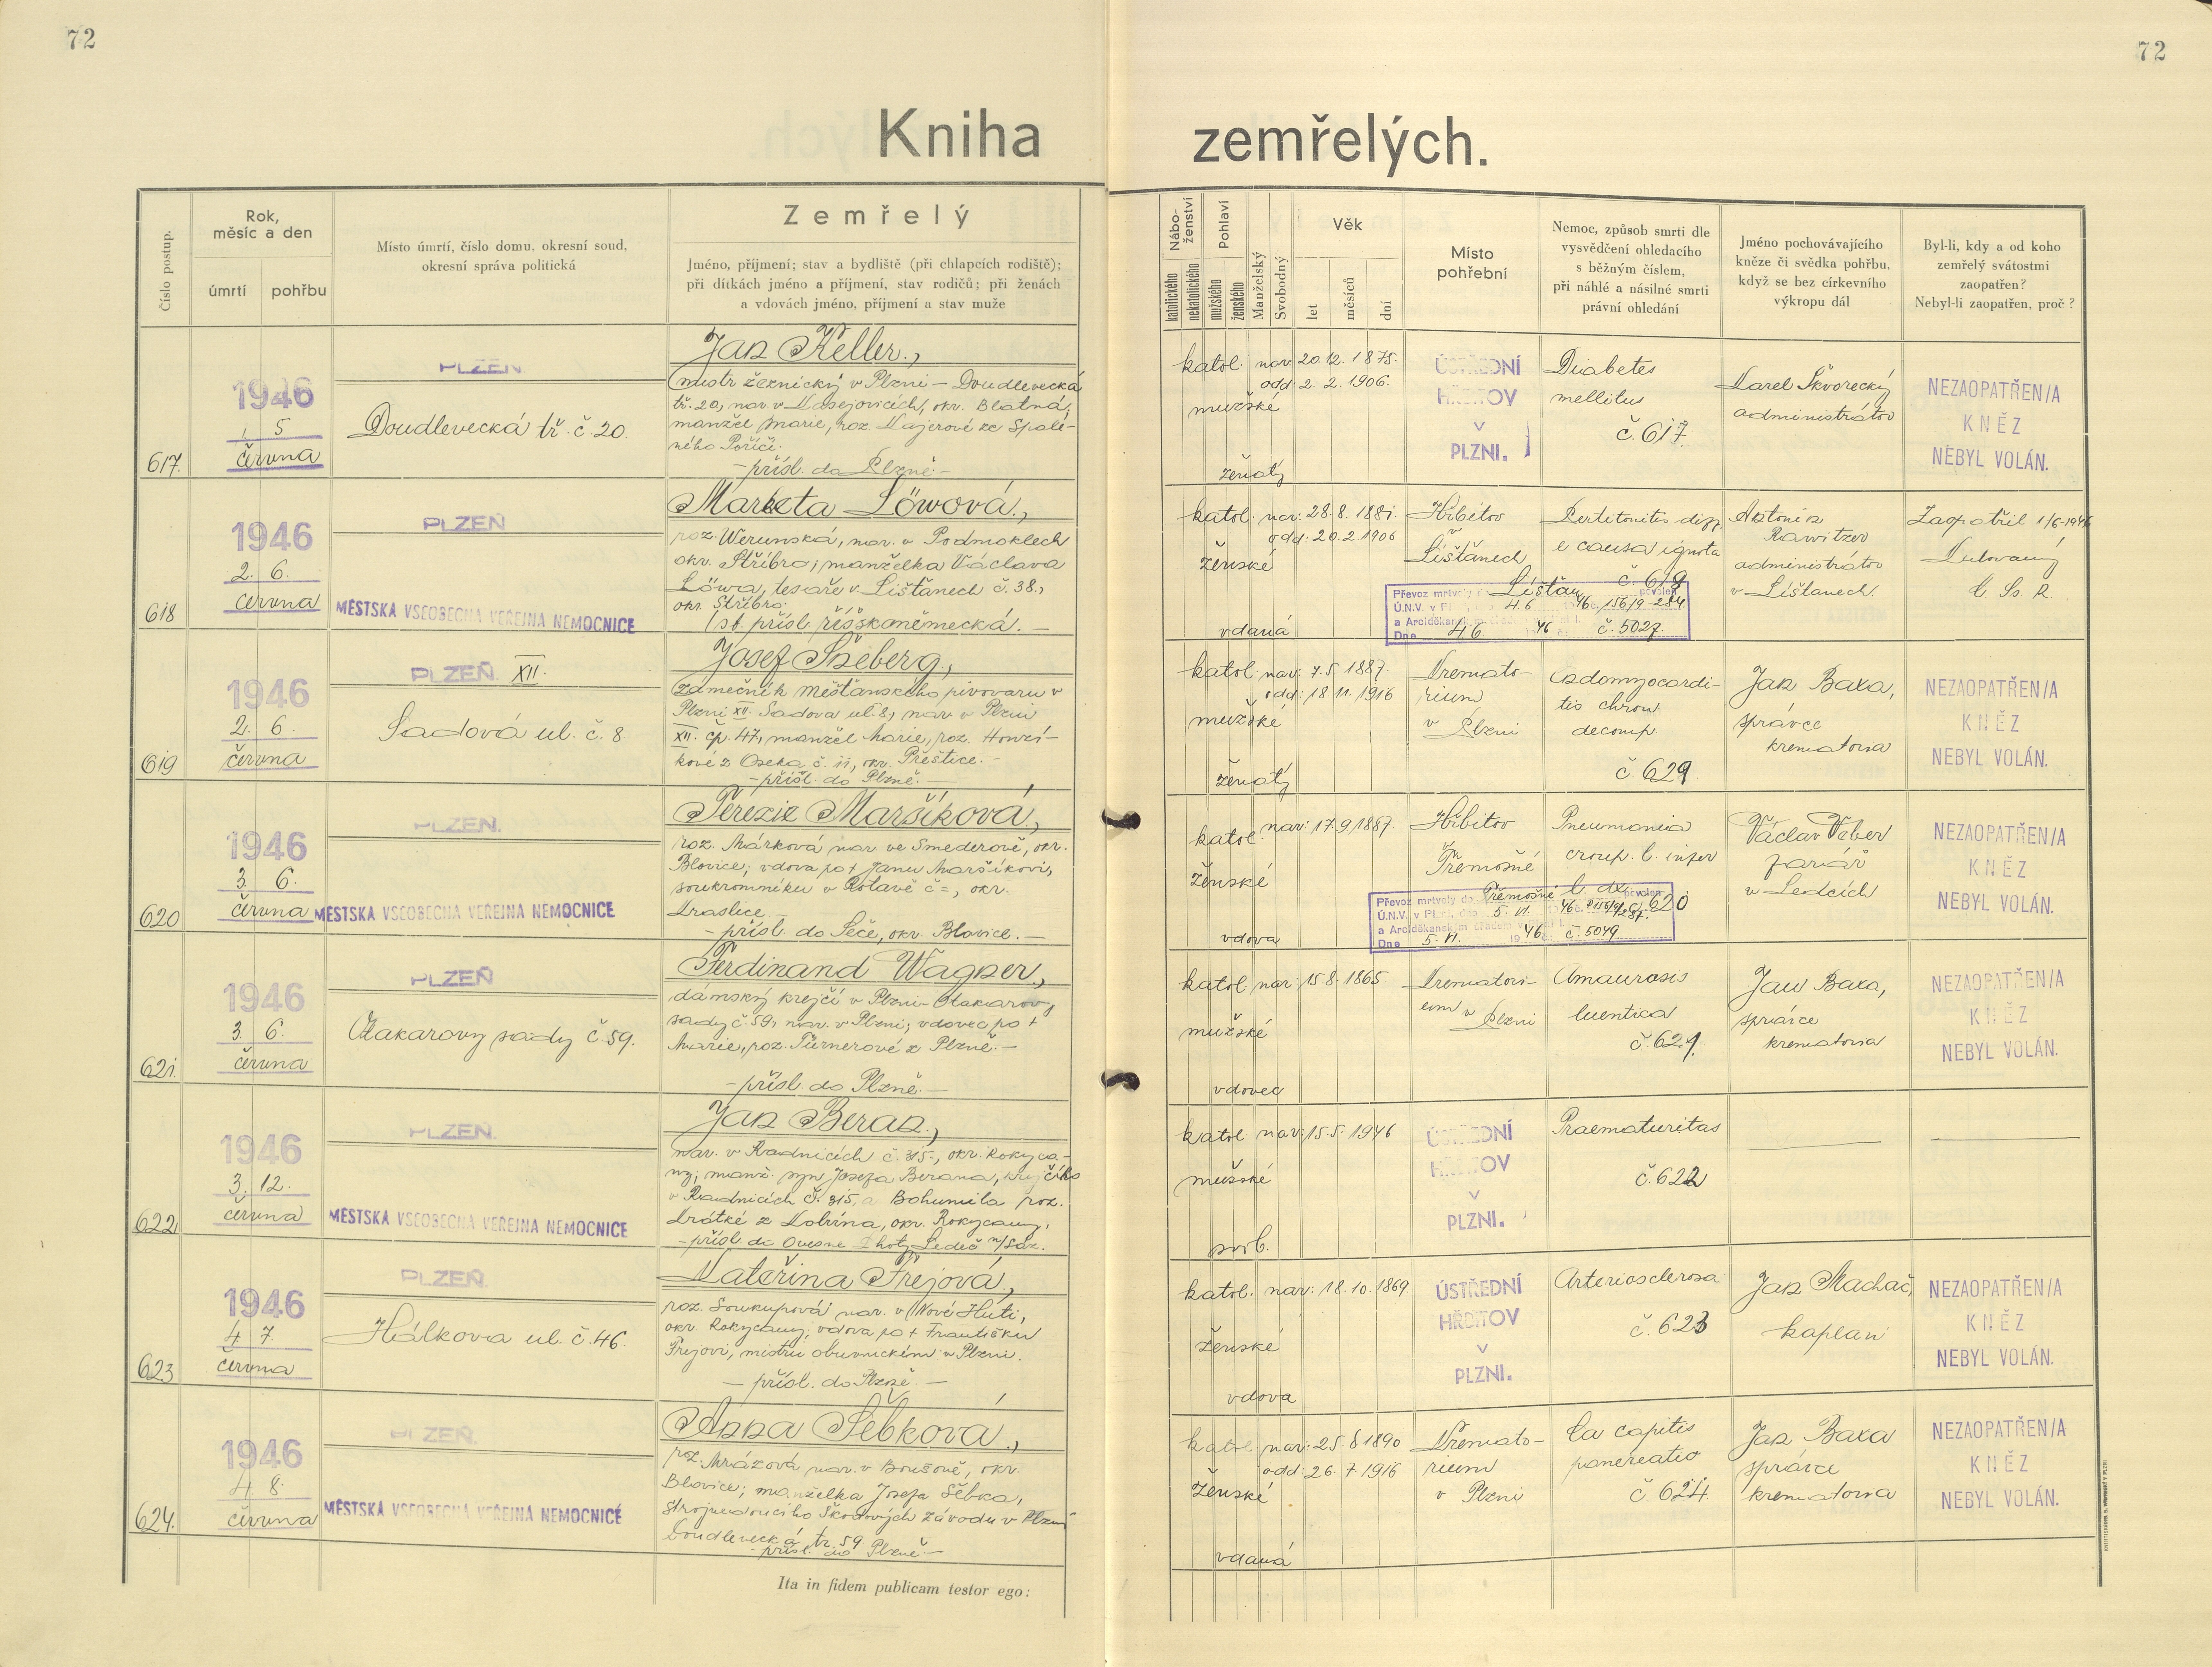 72
72
Kniha zemřelých.
Číslo postup.
Rok, měsíc a den
úmrtí
pohřbu
Místo úmrtí, číslo domu, okresní soud,
okresní správa politická
Zemřelý
Jméno, příjmení; stav a bydliště (při chlapcích rodiště);
při dítkách jméno a příjmení, stav rodičů; při ženách
a vdovách jméno, příjmení a stav muže
Nábo-
ženství
katolického
nekatolického
Pohlaví
mužského
ženského
Manželský
Svobodný
Věk
let
měsíců
dní
Místo
pohřební
Nemoc, způsob smrti dle
vysvědčení ohledacího
s běžným číslem,
při náhlé a násilné smrti
právní ohledání
Jméno pochovávajícího
kněze či svědka pohřbu,
když se bez církevního
výkropu dál
Byl-li, kdy a od koho
zemřelý svátostmi
zaopatřen?
Nebyl-li zaopatřen, proč?
617.
1946
1 5
června
PLZEŇ
Doudlevecká tř. č. 20.
Jan Keller.,
mistr řeznický v Plzni – Doudlevecká
tř. 20, nar. v Kasejovicích, okr. Blatná,
manžel Marie, roz. Majerové ze Spále-
ného Poříčí.
– přísl. do Plzně –
katol.
mužské
ženatý
nar. 20.12. 1875.
odd: 2. 2. 1906.
ÚSTŘEDNÍ
HŘBITOV
V
PLZNI.
Diabetes
mellitus
č. 617
Karel Škvorecký
administrátor
NEZAOPATŘEN/A
KNĚZ
NEBYL VOLÁN.
618
1946
2. 6.
června
PLZEŇ
MĚSTSKÁ VŠEOBECNÁ VEŘEJNÁ NEMOCNICE
Marketa Löwová.,
roz. Werunská, nar. v Podmoklech
okr. Stříbro; manželka Václava
Löwa, tesaře v Lišťanech č. 38.,
okr. Stříbro.
st. přísl. říšskoněmecká. –
katol.
ženské
vdaná
nar: 28. 8. 1881.
odd: 20. 2. 1906
Hřbitov
v
Lišťanech
e causa ignota
č. 618
Převoz mrtvoly do Lišťan povolen
Ú.N.V. v Plzni, dne 4.6. 46
a Arciděkanským úřadem v Plzni I.
Dne 4.6. 46 č. 5027
Antonín
Rawitzer
administrátor
v Lišťanech
Zaopatřil 1/6-1946
C. Ss. R.
619
1946
2. 6.
června
PLZEŇ XII.
Sadová ul. č. 8
Josef Šneberg,
zámečník Měšťanského pivovaru v
Plzni XII. Sadova ul. 8, nar. v Plzni
XII. čp. 47, manžel Marie, roz. Honzí-
kové z Oseka č. 11, okr. Přeštice. –
– přísl. do Plzně. –
katol.
mužské
ženatý
nar: 7. 5. 1887.
odd: 18. 11. 1916
Kremato-
rium
v Plzni
Endomyocardi-
tis chron.
decomp.
č. 629.
Jan Baxa,
správce
krematoria
NEZAOPATŘEN/A
KNĚZ
NEBYL VOLÁN.
620
1946
3. 6.
června
PLZEŇ.
MĚSTSKÁ VŠEOBECNÁ VEŘEJNÁ NEMOCNICE
Terezie Maršíková,
roz. Márková nar. ve Smederově, okr.
Blovice; vdova po † Janu Maršíkovi,
soukromníku v Rotavě č =, okr.
Kraslice
– přísl. do Seče, okr. Blovice. –
katol.
ženské
vdova
nar: 17.9.1887
Hřbitov
Třemošné
Pneumonia
croup. l. infer
l. dx.
č. 620
Převoz mrtvoly do Třemošné povolen
Ú.N.V. v Plzni, dne 5. VI. 46
a Arciděkanským úřadem v Plzni I.
Dne 5. VI. 1946 č. 5049
Václav Weber
farář
v Ledcích
NEZAOPATŘEN/A
KNĚZ
NEBYL VOLÁN.
621.
1946
3. 6.
června
PLZEŇ
Otakarovy sady č. 59.
Ferdinand Wagner.,
dámský krejčí v Plzni – Otakarovy
sady č. 59, nar. v Plzni; vdovec po †
Marie, roz. Türnerové z Plzně. –
– přísl. do Plzně. –
katol.
mužské
vdovec
nar: 15. 8. 1865.
Krematori-
um v Plzni
Amaurosis
luentica
č. 621.
Jan Baxa,
správce
krematoria
NEZAOPATŘEN/A
KNĚZ
NEBYL VOLÁN.
622
1946
3. 12.
června
PLZEŇ.
MĚSTSKÁ VŠEOBECNÁ VEŘEJNÁ NEMOCNICE
Jan Beran.,
nar. v Radnicích č. 315., okr. Rokyca-
ny; manž. syn Josefa Berana, krejčího
v Radnicích č. 315, a Bohumila roz.
Krátké z Dobřína, okr. Rokycany,
– přísl. do Ovesné Lhoty, Ledeč n/Sáz.
katol.
mužské
svob.
nar: 15. 5. 1946
ÚSTŘEDNÍ
HŘBITOV
V
PLZNI.
Praematuritas
č. 622
623
1946
4 7.
června
PLZEŇ.
Hálkova ul. č. 46.
Kateřina Frejová.,
roz. Soukupová nar. v Nové Huti,
okr. Rokycany; vdova po † Františku
Frejovi, mistru obuvnickém v Plzni.
– přísl. do Plzně. –
katol.
ženské
vdova
nar: 18. 10. 1869
ÚSTŘEDNÍ
HŘBITOV
V
PLZNI.
Arteriosclerosa
č. 623
Jan Machač,
kaplan
NEZAOPATŘEN/A
KNĚZ
NEBYL VOLÁN.
624.
1946
4. 8.
června
PLZEŇ.
MĚSTSKÁ VŠEOBECNÁ VEŘEJNÁ NEMOCNICE
Anna Šebková.,
roz. Mrázová nar. v Boušově, okr.
Blovice; manželka Josefa Šebka,
strojvedoucího Škodových závodů v Plzni
Doudlevecká tř. 59
– přísl. do Plzně –
katol.
ženské
vdaná
nar: 25. 6 1890
odd: 26. 7. 1916
Kremato-
rium
v Plzni
Ca capitis
pancreatis
č. 624.
Jan Baxa
správce
krematoria
NEZAOPATŘEN/A
KNĚZ
NEBYL VOLÁN.
Ita in fidem publicam testor ego: